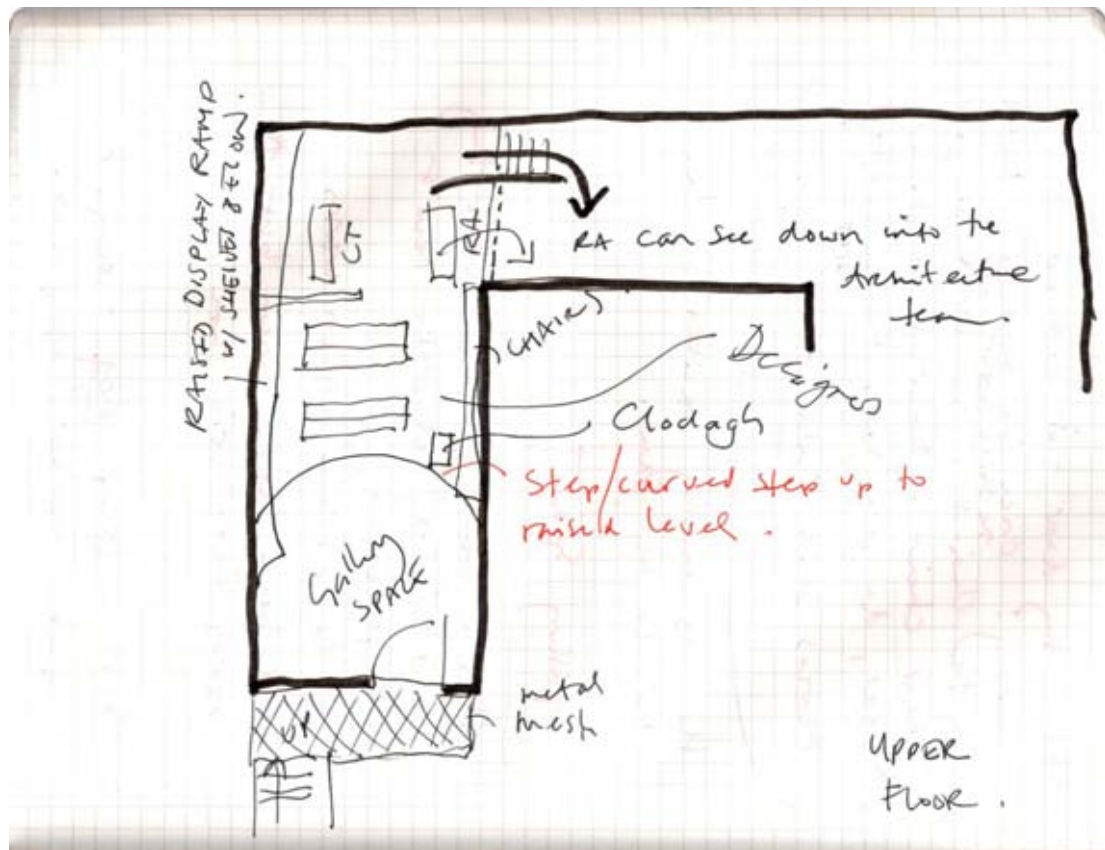 RAISED DISPLAY RAMP
W/ SHELVES BELOW.
CT
RA
RA can see down into the
Architecture
team.
CHAIRS
Designers
Clodagh
Step/curved step up to
raised level.
Gallery
SPACE
metal
mesh
UP
UPPER
FLOOR.